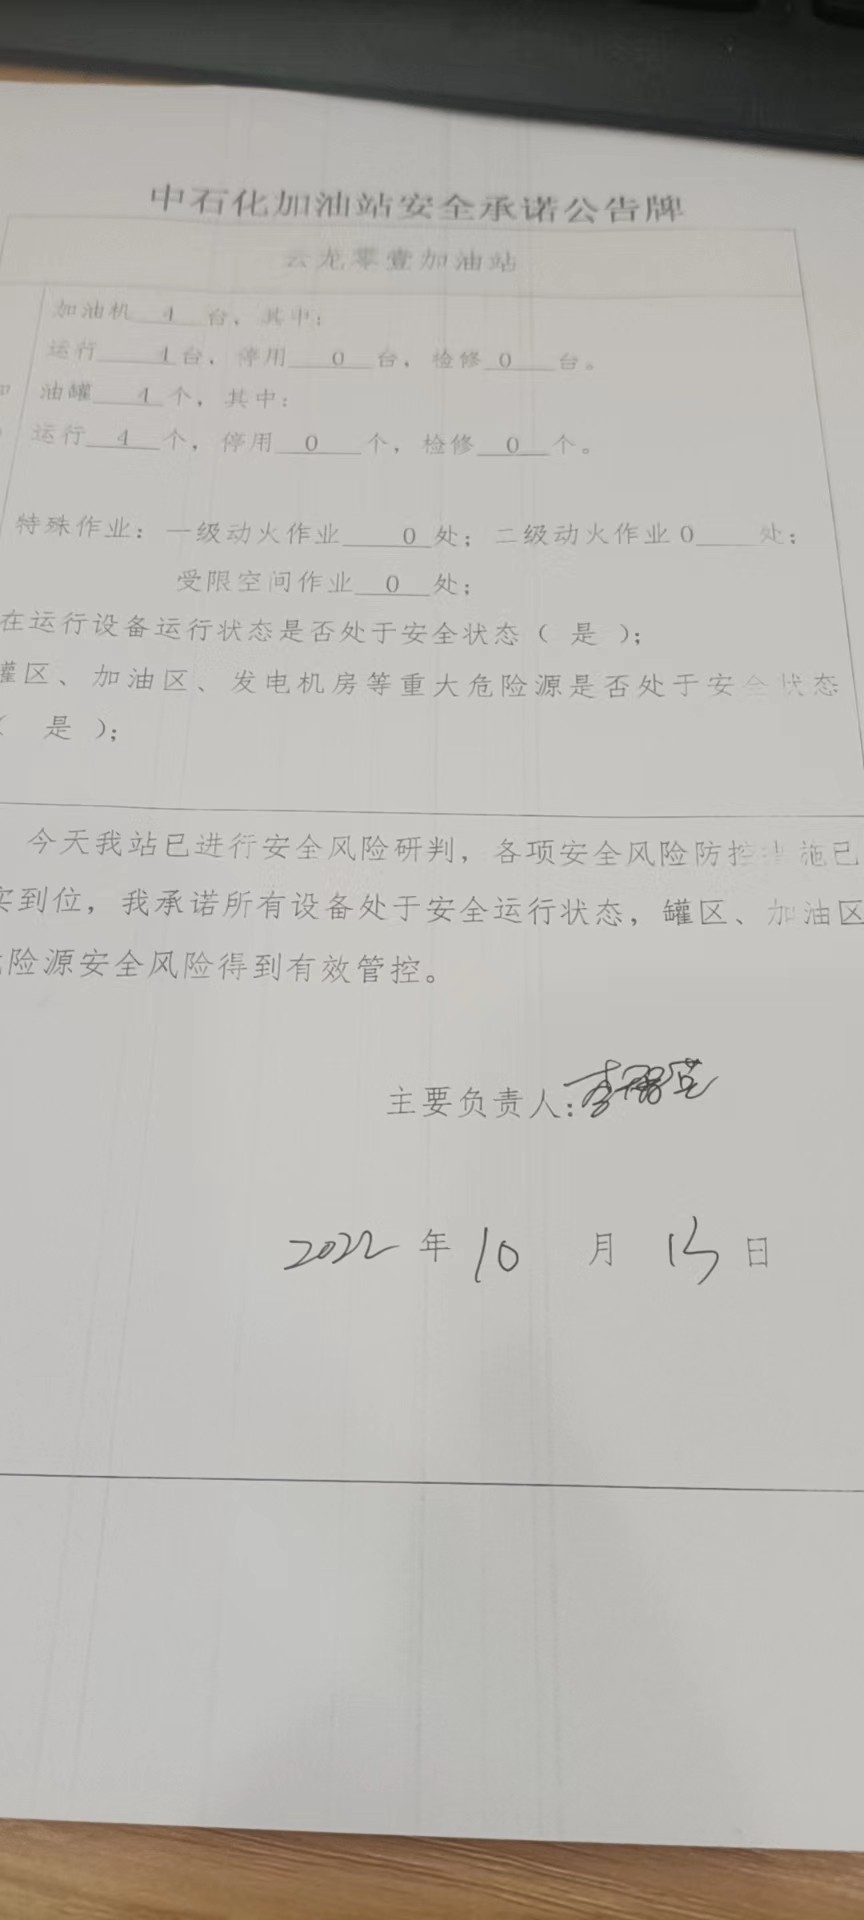 中石化加油站安全承诺公告牌
云龙零壹加油站
加油机 4 台，其中：
运行 4 台，停用 0 台，检修 0 台。
油罐 4 个，其中：
运行 4 个，停用 0 个，检修 0 个。
特殊作业：一级动火作业 0 处；二级动火作业 0 处；
受限空间作业 0 处；
在运行设备运行状态是否处于安全状态（ 是 ）；
罐区、加油区、发电机房等重大危险源是否处于安全状态
（ 是 ）；
今天我站已进行安全风险研判，各项安全风险防控措施已
实到位，我承诺所有设备处于安全运行状态，罐区、加油区
险源安全风险得到有效管控。
主要负责人：李
2022 年 10 月 13 日